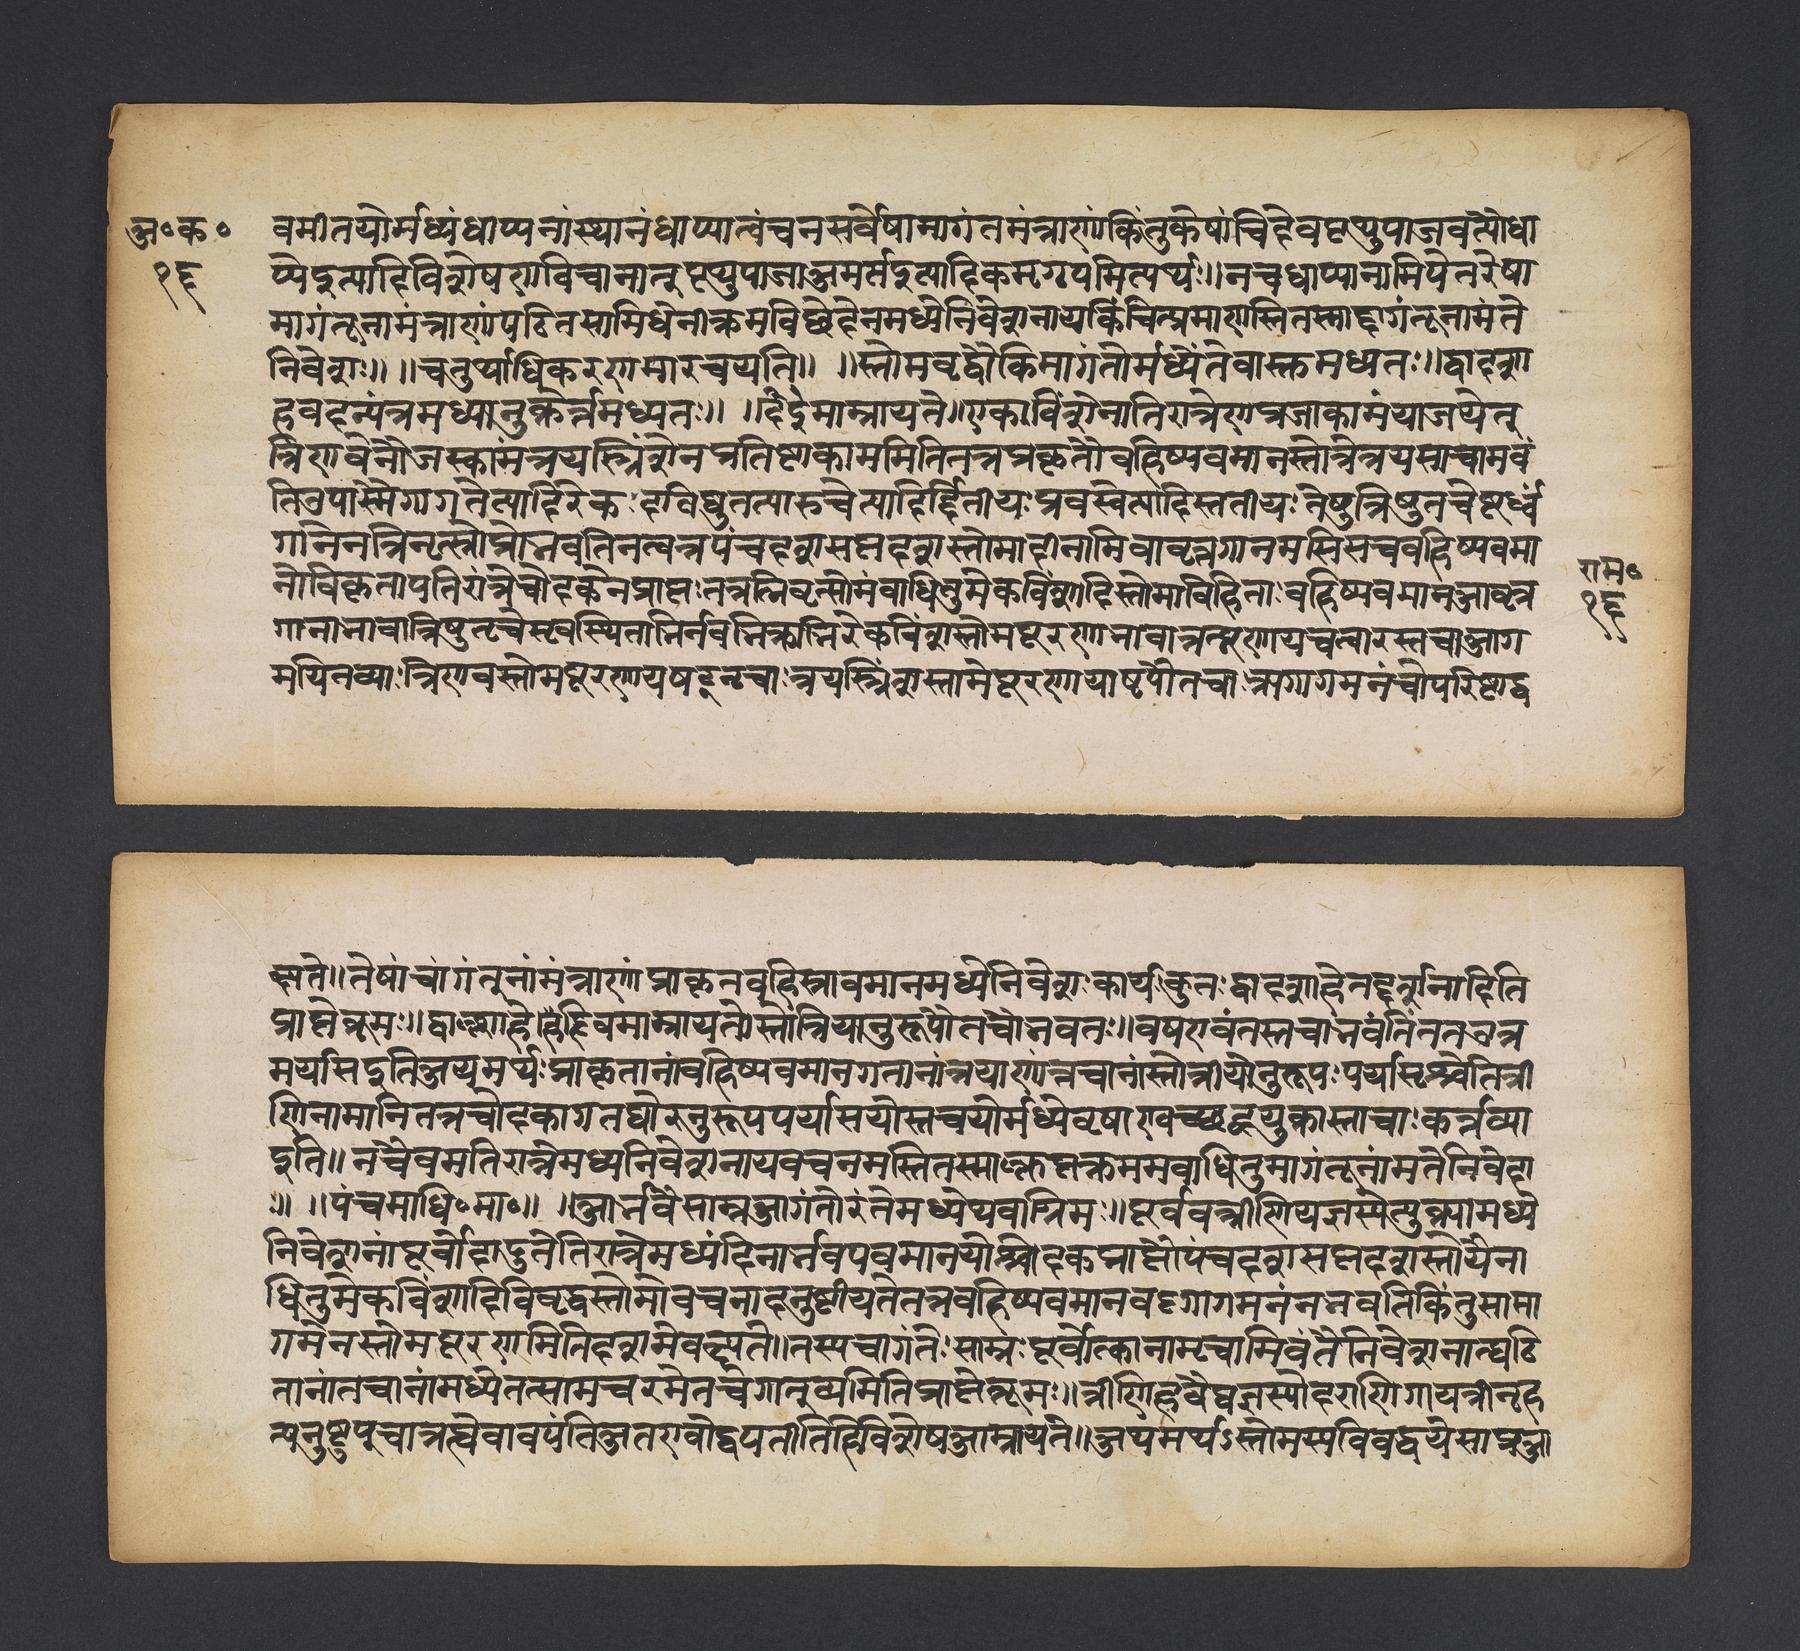 अ॰क॰
१६
वमीतयोर्मध्यंधाय्यनांस्थानंधाय्यात्वंचनसर्वेषामागंतमंत्राणांकिंतुकेषांचिदेवपृथुपाजवत्यौधा
य्येइत्यादिविशेषणविधानात्पृथुपाजाअमर्त्यइत्यादिकमृग्द्वयमित्यर्थः॥नचधाय्यानामिवेतरेषा
मागंतूनामंत्राणांपठितसामिधेनीक्रमविछेदेनमध्येनिवेशनायकिंचित्प्रमाणास्तितस्मादागंतूनामंते
निवेशः॥ ॥चतुर्थाधिकरणमारचयति॥ ॥स्तोमवृद्धौकिमागंतोर्मध्येंतेवास्तमध्यतः॥द्वादशा
हवदन्यंत्रमध्यानुक्तेर्नमध्यतः॥ ॥इदमाम्नायते॥एकविंशेनातिरात्रेणप्रजाकामंयाजयेत्
त्रिणवेनौजस्कामंत्रयस्त्रिंशेनप्रतिष्टाकाममितितत्रप्रकृतौवहिष्पवमानस्तोत्रेत्रयस्तृचाभवं
तिउपास्मैगायतेत्यादिरेकःदविद्युतत्यारुचेत्यादिर्द्वितीयःपवस्वेत्यादिस्तृतीयःतेषुत्रिषुतृचेषूर्ध्वं
गानेनत्रिवृत्स्तोमोभवतिनत्वत्रपंचदशसप्तदशस्तोमादीनामिवावृत्तगानमस्तिसचवहिष्पवमा
नोविकृतावतिरात्रेचोदकेनप्राप्तःतत्रत्रिवृत्सोमंवाधितुमेकविंशादिस्तोमाविहिताःवहिष्पवमानआवृत्त
गानाभावात्रिषुतृचेस्ववस्थिताभिर्नवभिर्ऋग्भिरेकविंशस्तोमपूरणाभावात्तत्पूरणायचत्वारस्तृचाआग
मयितव्याःत्रिणवस्तोमपूरणायषट्तृचाःत्रयस्त्रिंशस्तोमपूरणायाष्टौतृचाःऋगागमनंचोपरिष्टाद्व
राम॰
१६
क्ष्यते॥तेषांचागंतुनांमंत्राणांप्राकृतवहिष्पवमानमध्येनिवेशःकार्यःकुतःद्वादशाहेतद्दर्शनादिति
प्राप्तेब्रूमः॥द्वादशाहेहेदमिवमाम्नायतेस्तोत्रियानुरूपौतृचौभवतः॥वृषण्वंतस्तृचाभवंतितृचउत्त
मःपर्यासइतिअयमर्थःप्राकृतानांवहिष्पवमानगतानांत्रयाणांतृचानांस्तोत्रीयोनुरूपःपर्यासश्चेतित्री
णिनामानितत्रचोदकागतयोरनुरूपपर्यासयोस्तृचयोर्मध्येवृषण्वच्छब्दयुक्तास्तृचाःकर्त्तव्या
इति॥नचैवमतिरात्रेमध्यनिवेशनायवचनमस्तितस्मात्क्लृप्तक्रममवाधितुमागंतूनामंतेनिवेशः
॥ ॥पंचमाधि॰मा॰॥ ॥आर्भवेसाम्नआगंतोरंतेमध्येथवाग्रिमः॥पूर्ववत्त्रीणियज्ञस्येत्युक्त्यामध्ये
निवेशनांपूर्वोदाहृतेतिरात्रेमध्यंदिनार्भवपवमानयोश्चोदकप्राप्तौपंचदशसप्तदशस्तोमौवा
धितुमेकविंशादिविवृद्धस्तोमोवचनादनुष्ठीयतेतत्रवहिष्पवमानवदृगागमनंनभवतिकिंतुसामा
गमेनस्तोमपूरणमितिदशमेवक्ष्यते॥तस्यचागंतोःसाम्नःपूर्वोक्तानामृचामिवांतेनिवेशनात्पठि
तानांतृचानांमध्येतत्सामचरमेतृचेगातव्यमितिप्राप्तेब्रूमः॥त्रीणिहवैयज्ञस्योदराणिगायत्रीबृह
त्यनुष्टुप्चात्रह्येवावपंतिअतएवोद्वपंतीतिहिविशेषआम्नायते॥अयमर्थःस्तोमस्यविवृद्धयेसाम्नआ